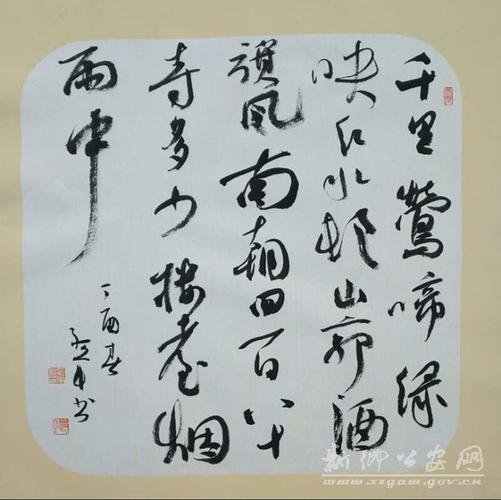 千里鶯啼绿
映红水村山郭酒
旗风南朝四百八十
寺多少楼臺烟
雨中
丁酉春
书
新鄉公安网
www.xxgaw.gov.cn